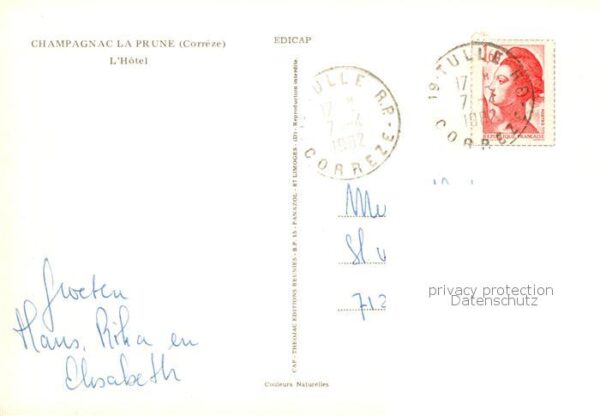 CHAMPAGNAC LA PRUNE (Corrèze)
L'Hôtel
EDICAP
Groeten
Hans, Rika en
Elisabeth
CAP - THEOJAC EDITIONS REUNIES - B.P. 15 - PANAZOL - 87 LIMOGES - (D) - Reproduction interdite
Couleurs Naturelles
TULLE R.P.
17 H
7 - 4
1982
CORREZE
19 - TULLE R.P.
17 H
7 - 4
1982
CORREZE
REPUBLIQUE FRANÇAISE
712
privacy protection
Datenschutz